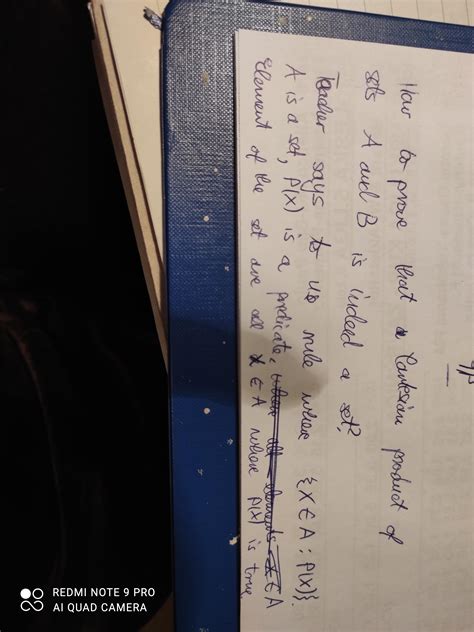 How to prove that a Cartesian product of
sets A and B is indeed a set?
Teacher says to us rule where {x ∈ A : P(x)}.
A is a set, P(x) is a predicate, where all elements x ∈ A
Element of the set are all x ∈ A where P(x) is true
REDMI NOTE 9 PRO
AI QUAD CAMERA